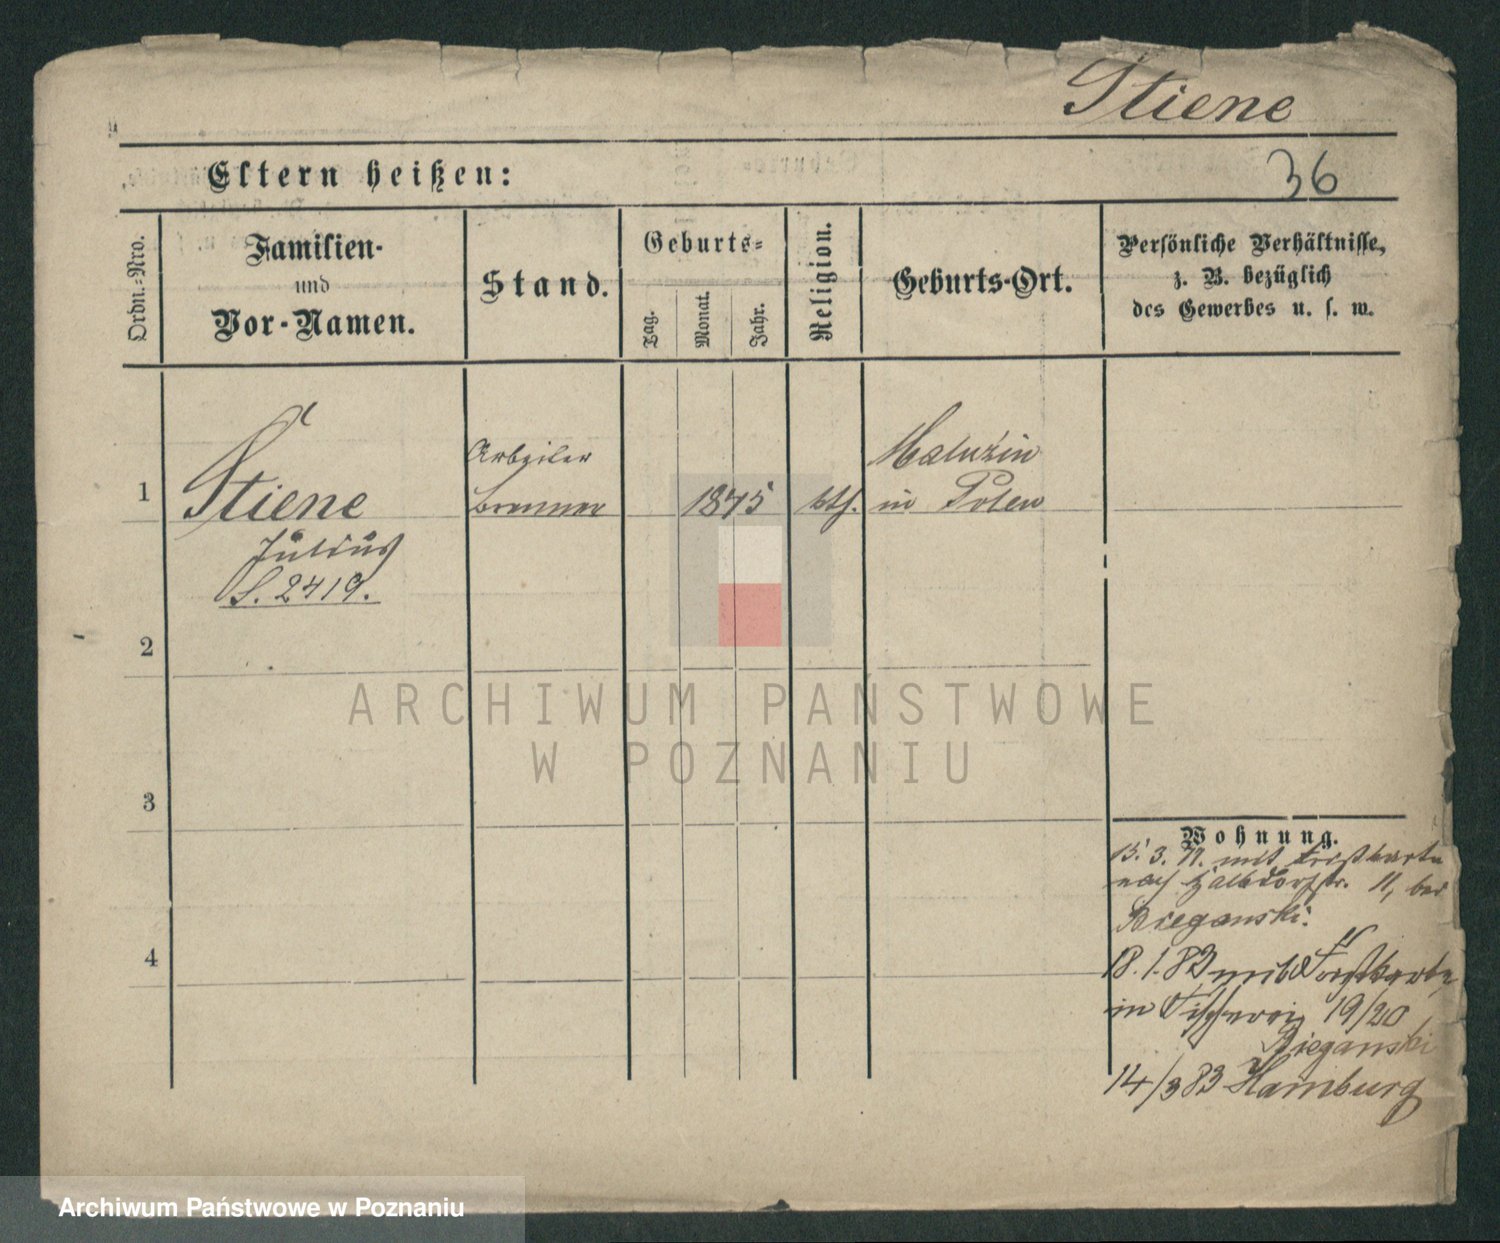 Stiene
Eltern heißen:
36
Ordn.-Nro.
Familien-
und
Vor-Namen.
Stand.
Geburts-
Tag.
Monat.
Jahr.
Religion.
Geburts-Ort.
Persönliche Verhältnisse,
z. B. bezüglich
des Gewerbes u. s. w.
1
Stiene
Julius
S. 2419.
Arbeiter
Brenner
1875
kth.
Maluzin
in Polen
2
3
4
ARCHIWUM PAŃSTWOWE
W POZNANIU
Wohnung.
15. 3. mit
nach Halbdorfstr. 11, bei
Bieganski.
18. 1. 83 mit
in Fischerei 19/20
Bieganski
14/3 83 Hamburg
Archiwum Państwowe w Poznaniu